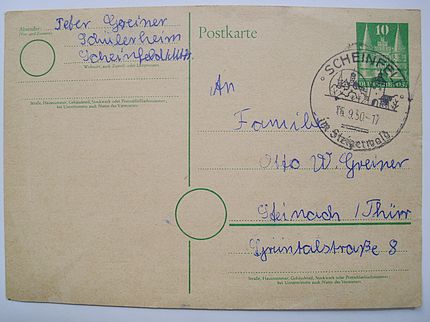 Absender:
Peter Greiner
Schülerheim
Scheinfeld/Mfr.
Wohnort, auch Zustell- oder Leitpostamt
Straße, Hausnummer, Gebäudeteil, Stockwerk oder Postschließfachnummer;
bei Untermietern auch Name des Vermieters
Postkarte
10
SCHEINFELD
16.9.50-17
im Steigerwald
An
Familie
Otto W. Greiner
Steinach /Thür
Gründtalstraße 8
Straße, Hausnummer, Gebäudeteil, Stockwerk oder Postschließfachnummer;
bei Untermietern auch Name des Vermieters